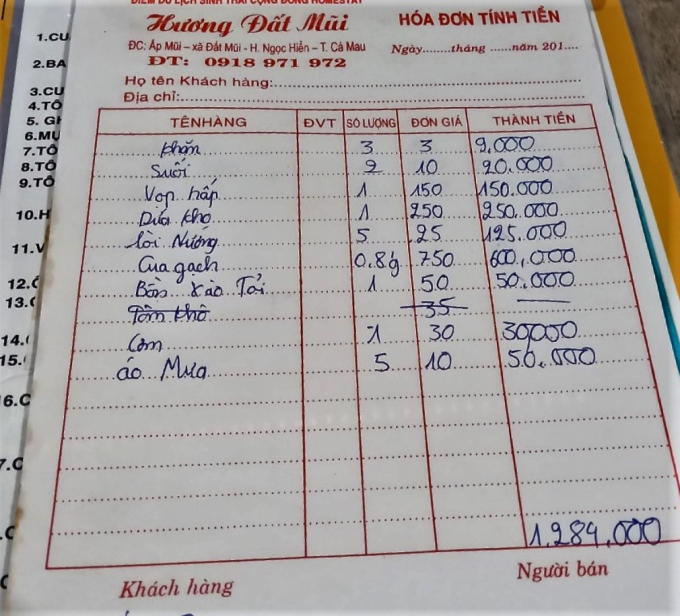 ĐIỂM DU LỊCH SINH THÁI CỘNG ĐỒNG HOMESTAY
Hương Đất Mũi
HÓA ĐƠN TÍNH TIỀN
ĐC: Ấp Mũi – xã Đất Mũi - H. Ngọc Hiển – T. Cà Mau
Ngày........tháng ......năm 201....
ĐT: 0918 971 972
Họ tên Khách hàng:
Địa chỉ:
TÊN HÀNG ĐVT SỐ LƯỢNG ĐƠN GIÁ THÀNH TIỀN
Khăn 3 3 9.000
Suối 2 10 20.000
Vọp hấp 1 150 150.000
Dứa kho 1 250 250.000
lòi Nướng 5 25 125.000
Cua gạch 0.8kg 750 600.000
Bồn xào Tỏi 1 50 50.000
Tôm khô 35
Cơm 1 30 30000
áo Mưa 5 10 50.000
1.284.000
Khách hàng Người bán
1.CU
2.BA
3.CU
4.TÔ
5. GI
6.MỰ
7.TÔ
8.TÔ
9.TÔ
10.H
11.V
13.
14.
15.
6.C
7.C